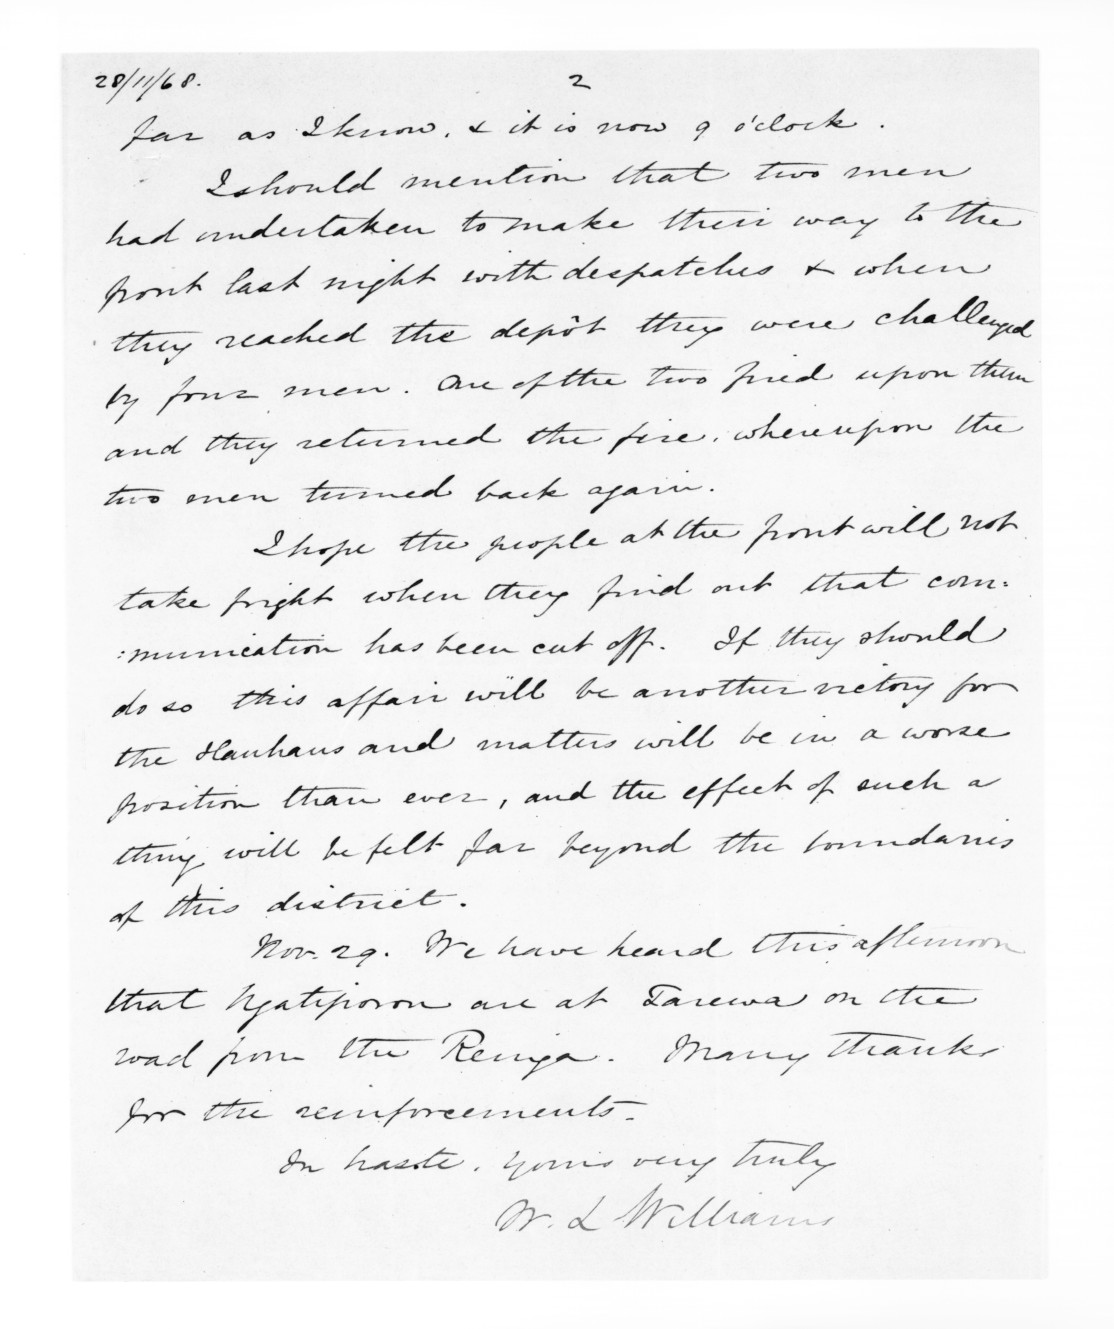 28/11/68. 2
far as I know. & it is now 9 o'clock.
I should mention that two men
had undertaken to make their way to the
front last night with despatches & when
they reached the depôt they were challenged
by four men. One of the two fired upon them
and they returned the fire. whereupon the
two men turned back again.
I hope the people at the front will not
take fright when they find out that com:
:munication has been cut off. If they should
do so this affair will be another victory for
the Hauhaus and matters will be in a worse
position than ever, and the effect of such a
thing will be felt far beyond the boundaries
of this district.
Nov. 29. We have heard this afternoon
that Ngatiporou are at Tarewa on the
road from the Reinga. Many thanks
for the reinforcements.
In haste. Yours very truly
W. L Williams